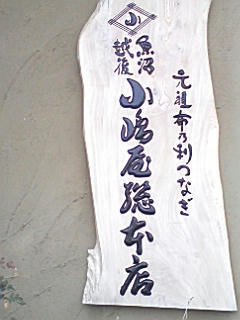 元祖布乃利つなぎ
小
越後
魚沼
小嶋屋総本店